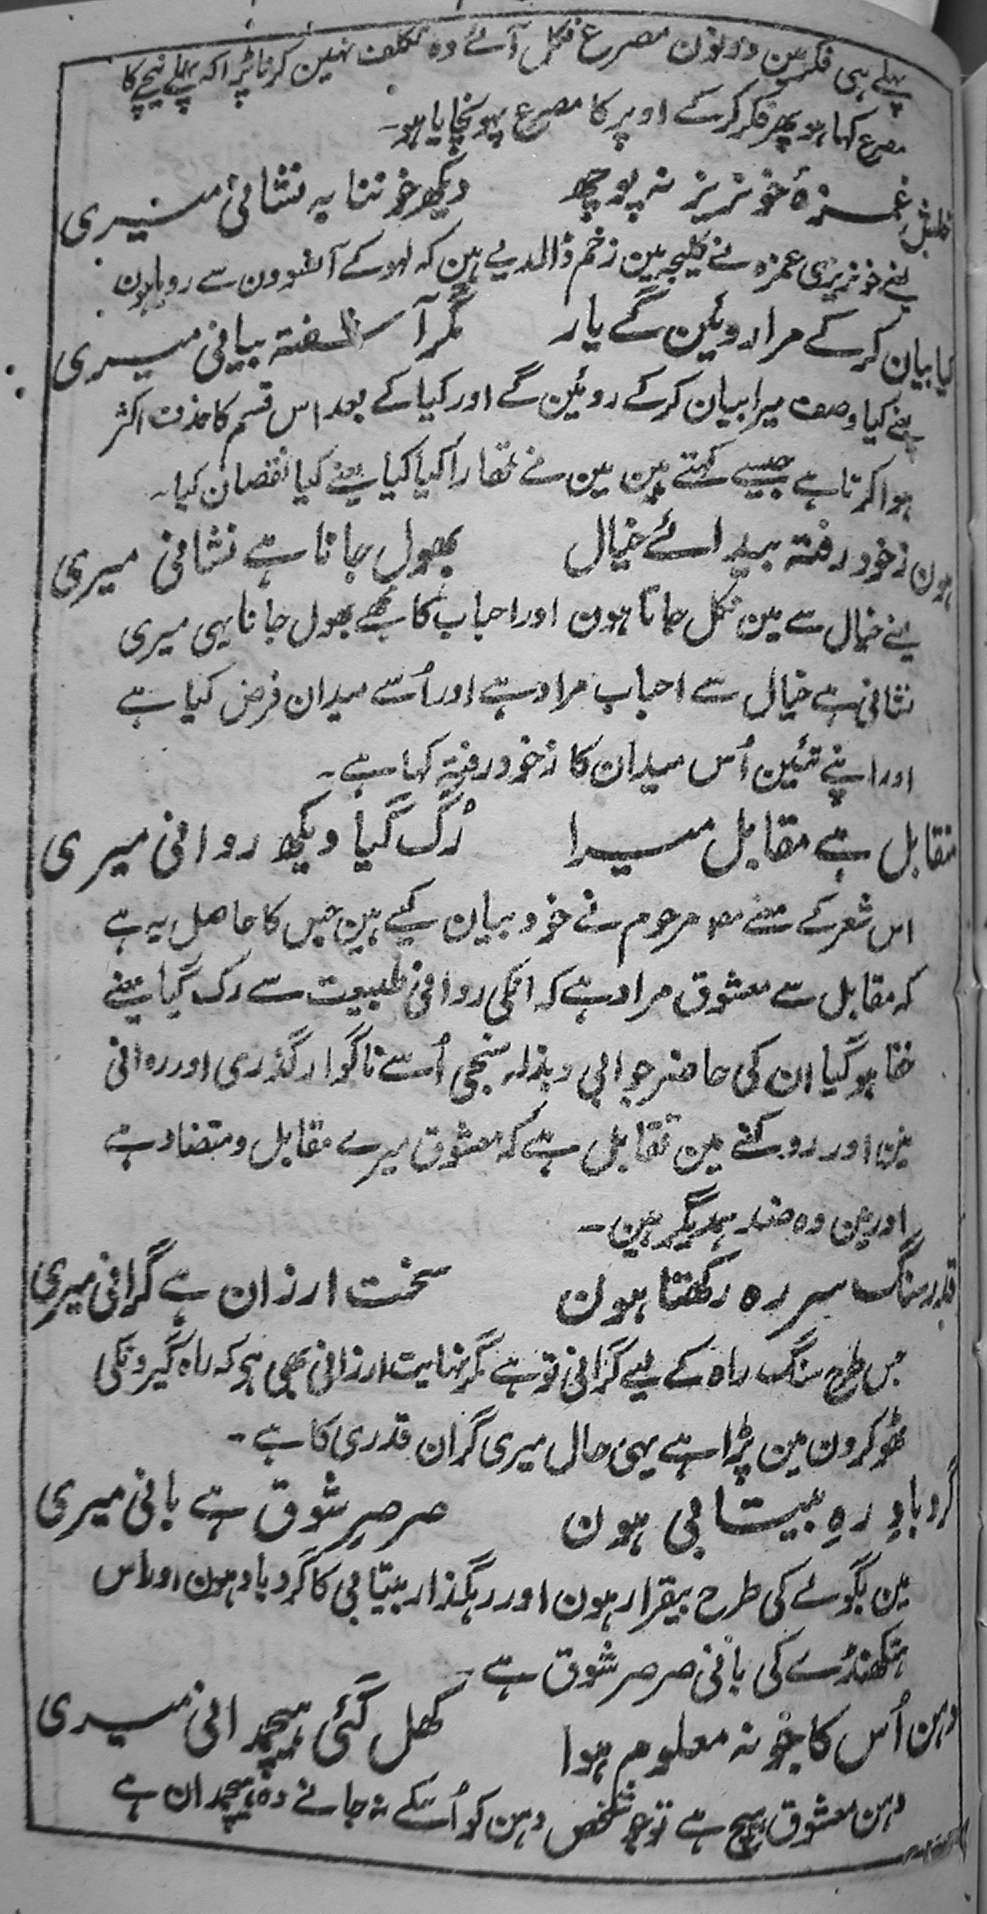 پہلے ہی فکر مین دونون مصرع نکل آئے وہ تکلف نہین کرنا پڑا کہ پہلے نیچے کا
مصرع کہا ہو پھر فکر کرکے اوپر کا مصرع پہونچایا ہو۔
خلش غمزۂ خونریز نہ پوچھ دیکھ خوننابہ نشانی میری
یعنے خونریزی غمزہ نے کلیجہ مین زخم ڈالدیے ہین کہ لہو کے آنسوون سے رو رہا ہون
کیا بیان کرکے مرا روئین گے یار مگر آشفتہ بیانی میری
یعنے کیا وصف میرا بیان کرکے روئین گے اور کیا کے بعد اس قسم کا حذف اکثر
ہوا کرتا ہے جیسے کہتے ہین مین نے تمھارا کیا کیا یعنے کیا نقصان کیا۔
ہون زخود رفتۂ بیدائے خیال بھول جانا ہے نشانی میری
یعنے خیال سے مین نکل جاتا ہون اور احباب کا مجھے بھول جانا یہی میری
نشانی ہے خیال سے احباب مراد ہے اور اُسے میدان فرض کیا ہے
اور اپنے تئین اُس میدان کا زخود رفتہ کہا ہے۔
متقابل ہے مقابل میرا رُک گیا دیکھ روانی میری
اس شعر کے معنے مرحوم نے خود بیان کیے ہین جس کا حاصل یہ ہے
کہ مقابل سے معشوق مراد ہے کہ انکی روانی طبیعت سے رک گیا یعنے
خفا ہوگیا ان کی حاضر جوابی و بذلہ سنجی اُسے ناگوار گذری اور روانی
مین اور روکنے مین تقابل ہے کہ معشوق میرے مقابل و متضاد ہے
اور مین وہ ضد ہمدیگر ہین۔
قدر سنگ سر رہ رکھتا ہون سخت ارزان ہے گرانی میری
جس طرح سنگ راہ کے لیے گرانی تو ہے مگر نہایت ارزانی بھی ہو کہ راہ گیرونکی
ٹھوکرون مین پڑا ہے یہی حال میری گران قدری کا ہے۔
گردبادِ رہِ بیتابی ہون صرصرِ شوق ہے بانی میری
مین بگولے کی طرح بیقرار ہون اور رہگذار بیتابی کا گردباد ہون اور اس
ہتکھنڈے کی بانی صرصر شوق ہے۔
دہن اُس کا جو نہ معلوم ہوا کھل گئی ہیچمدانی میری
دہن معشوق ہیچ ہے تو جو شخص دہن کو اُسکے نہ جانے وہ ہیچمدان ہے